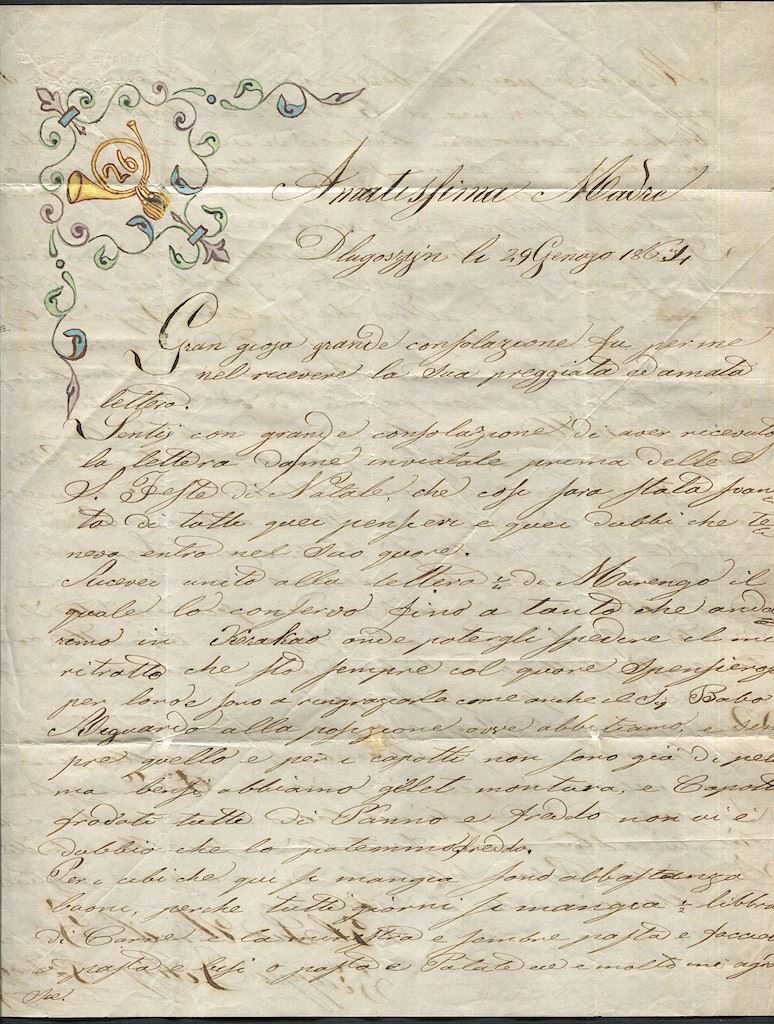 26
Amatissima Madre
Dlugoszÿn li 29 Genajo 1863,
Gran gioja grande consolazione fu per me
nel ricevere la sua preggiata ed amata
lettera.
Sentij con grande consolazione di aver ricevuto
la lettera da me inviatale prima delle S.
S. Feste di Natale, che cosi sara stata svan=
ta di tutti quei pensieri e quei dubbi che te=
neva entro nel suo quore.
unito alla lettera ½ di Marengo il
quale lo conservo fino a tanto che anda=
remo in Krakao onde potergli spedire il mio
ritratto che stò sempre col quore spensieroso
per loro e sono a ringraziarla come anche il Sig Babo
Riguardo alla posizione ove abbitiamo, e sem=
pre quello e per i capotti non sono già di pel
ma bensi abbiamo gilet montura, e Capotto
frodati tutti di Panno e fredo non vi è
dubbio che lo patemmo freddo.
Per i cibi che qui si mangia sono abbastanza
buoni, perche tutti giorni si mangia ½ libbra
di Carne e la minestra e sempre pasta e
o pasta e risi o pasta e Patate che e molto mi agra
sce.